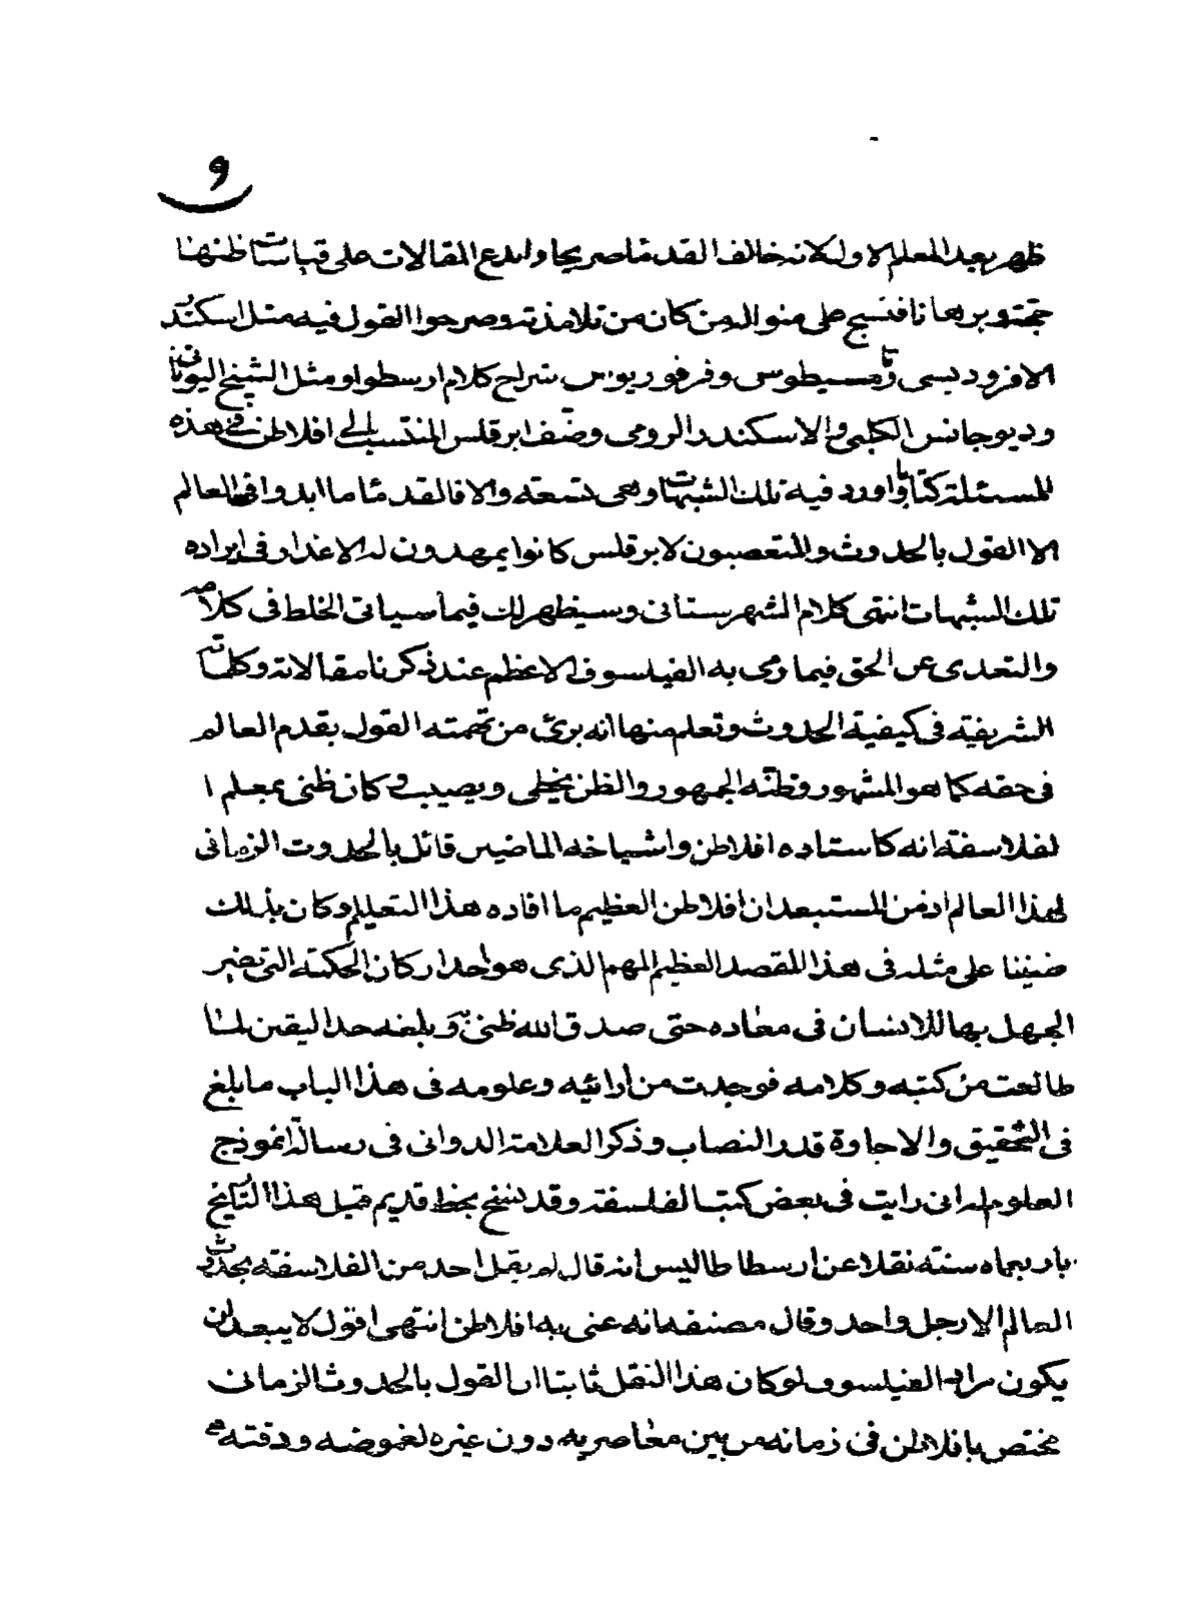 ٩
ظهر بعد المعلم الاول لانه خالف القدما صريحا وابدع المقالات على قياسات ظنها
حجة وبرهانا فنسج على منواله من كان من تلامذته وصرحوا القول فيه مثل اسكندر
الافروديسى وثامسيطوس وفرفوريوس شراح كلام ارسطو او مثل الشيخ اليونانى
وديوجانس الكلبى والاسكندر الرومى وصنف ابرقلس المنتسب الى افلاطن فى هذه
المسئلة كتابا واورد فيه تلك الشبهات وهى تسعة والا فالقدما ما ابدوا فى العالم
الا القول بالحدوث والمتعصبون لابرقلس كانوا يمهدون له الاعذار فى ايراده
تلك الشبهات انتهى كلام الشهرستانى وسيظهر لك فيما سياتى الخلط فى كلامه
والتعدى عن الحق فيما رمى به الفيلسوف الاعظم عند ذكرنا مقالاته وكلماته
الشريفة فى كيفية الحدوث وتعلم منها انه برئ من تهمته القول بقدم العالم
فى حقه كما هو المشهور وظنه الجمهور والظن يخطى ويصيب وكان ظنى بمعلم ا
لفلاسفة انه كاستاده افلاطن واشياخه الماضيين قائل بالحدوث الزمانى
لهذا العالم اذ من المستبعد ان افلاطن العظيم ما افاده هذا التعليم وكان بذلك
ضنينا على مثله فى هذا المقصد العظيم المهم الذى هو احد اركان الحكمة التى يضير
الجهل بها للانسان فى معاده حتى صدق الله ظنى وبلغه حد اليقين لما
طالعت من كتبه وكلامه فوجدت من ارائه وعلومه فى هذا الباب ما بلغ
فى التحقيق والاجادة قدر النصاب وذكر العلامة الدوانى فى رسالة انموذج
العلوم انى رايت فى بعض كتب الفلسفة وقد نسخ بخط قديم قبل هذا التاريخ
باربعماه سنة نقلا عن ارسطاطاليس انه قال لم يقل احد من الفلاسفة بحدوث
العالم الا رجل واحد وقال مصنفه انه عنى به افلاطن انتهى اقول لا يبعد ان
يكون مراد الفيلسوف لو كان هذا النقل ثابتا ان القول بالحدوث الزمانى
مختص بافلاطن فى زمانه من بين معاصريه دون غيره لغموضه ودقته